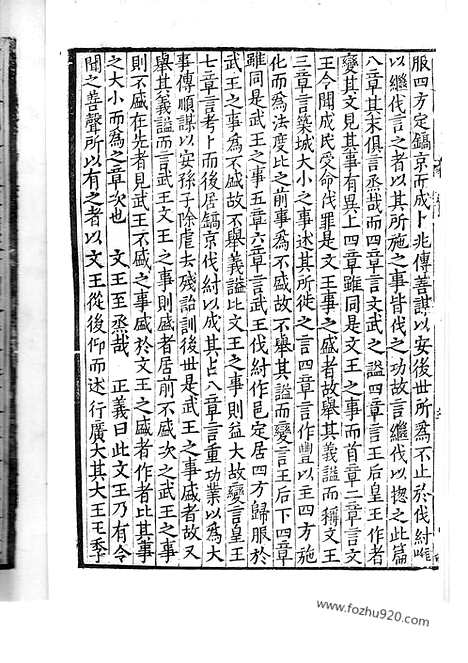 服四方定鎬京而成卜兆傳善謀以安後世所爲不止於伐紂雖
以繼伐言之者以其所施之事皆伐之功故言繼伐以揔之此篇
八章其末俱言烝哉而四章言文武之謚四章言王后皇王作者
變其文見其事有異上四章雖同是文王之事而首章二章言文
王令聞成民受命伐罪是文王事之盛者故舉其義謚而稱文王
三章言築城大小之事述其所徙之言四章言作豐以主四方施
化而為法度比之前事為不盛故不舉其謚而變言王后下四章
雖同是武王之事五章六章言武王伐紂作邑定居四方歸服於
武王之事為不盛故不舉義謚比文王之事則益大故變言皇王
七章言考卜而後居鎬京伐紂以成其占八章言重功業以為大
事傳順謀以安孫子除虐去殘詒訓後世是武王之事盛者故又
舉其義謚而言武王文王之事則盛者居前不盛次之武王之事
則不盛在先者見武王不盛之事盛於文王之盛者作者比其事
之大小而為之章次也 文王至烝哉 正義曰此文王乃有令
聞之善聲所以有之者以文王從後仰而述行廣大其大王王季
www.fozhu920.com